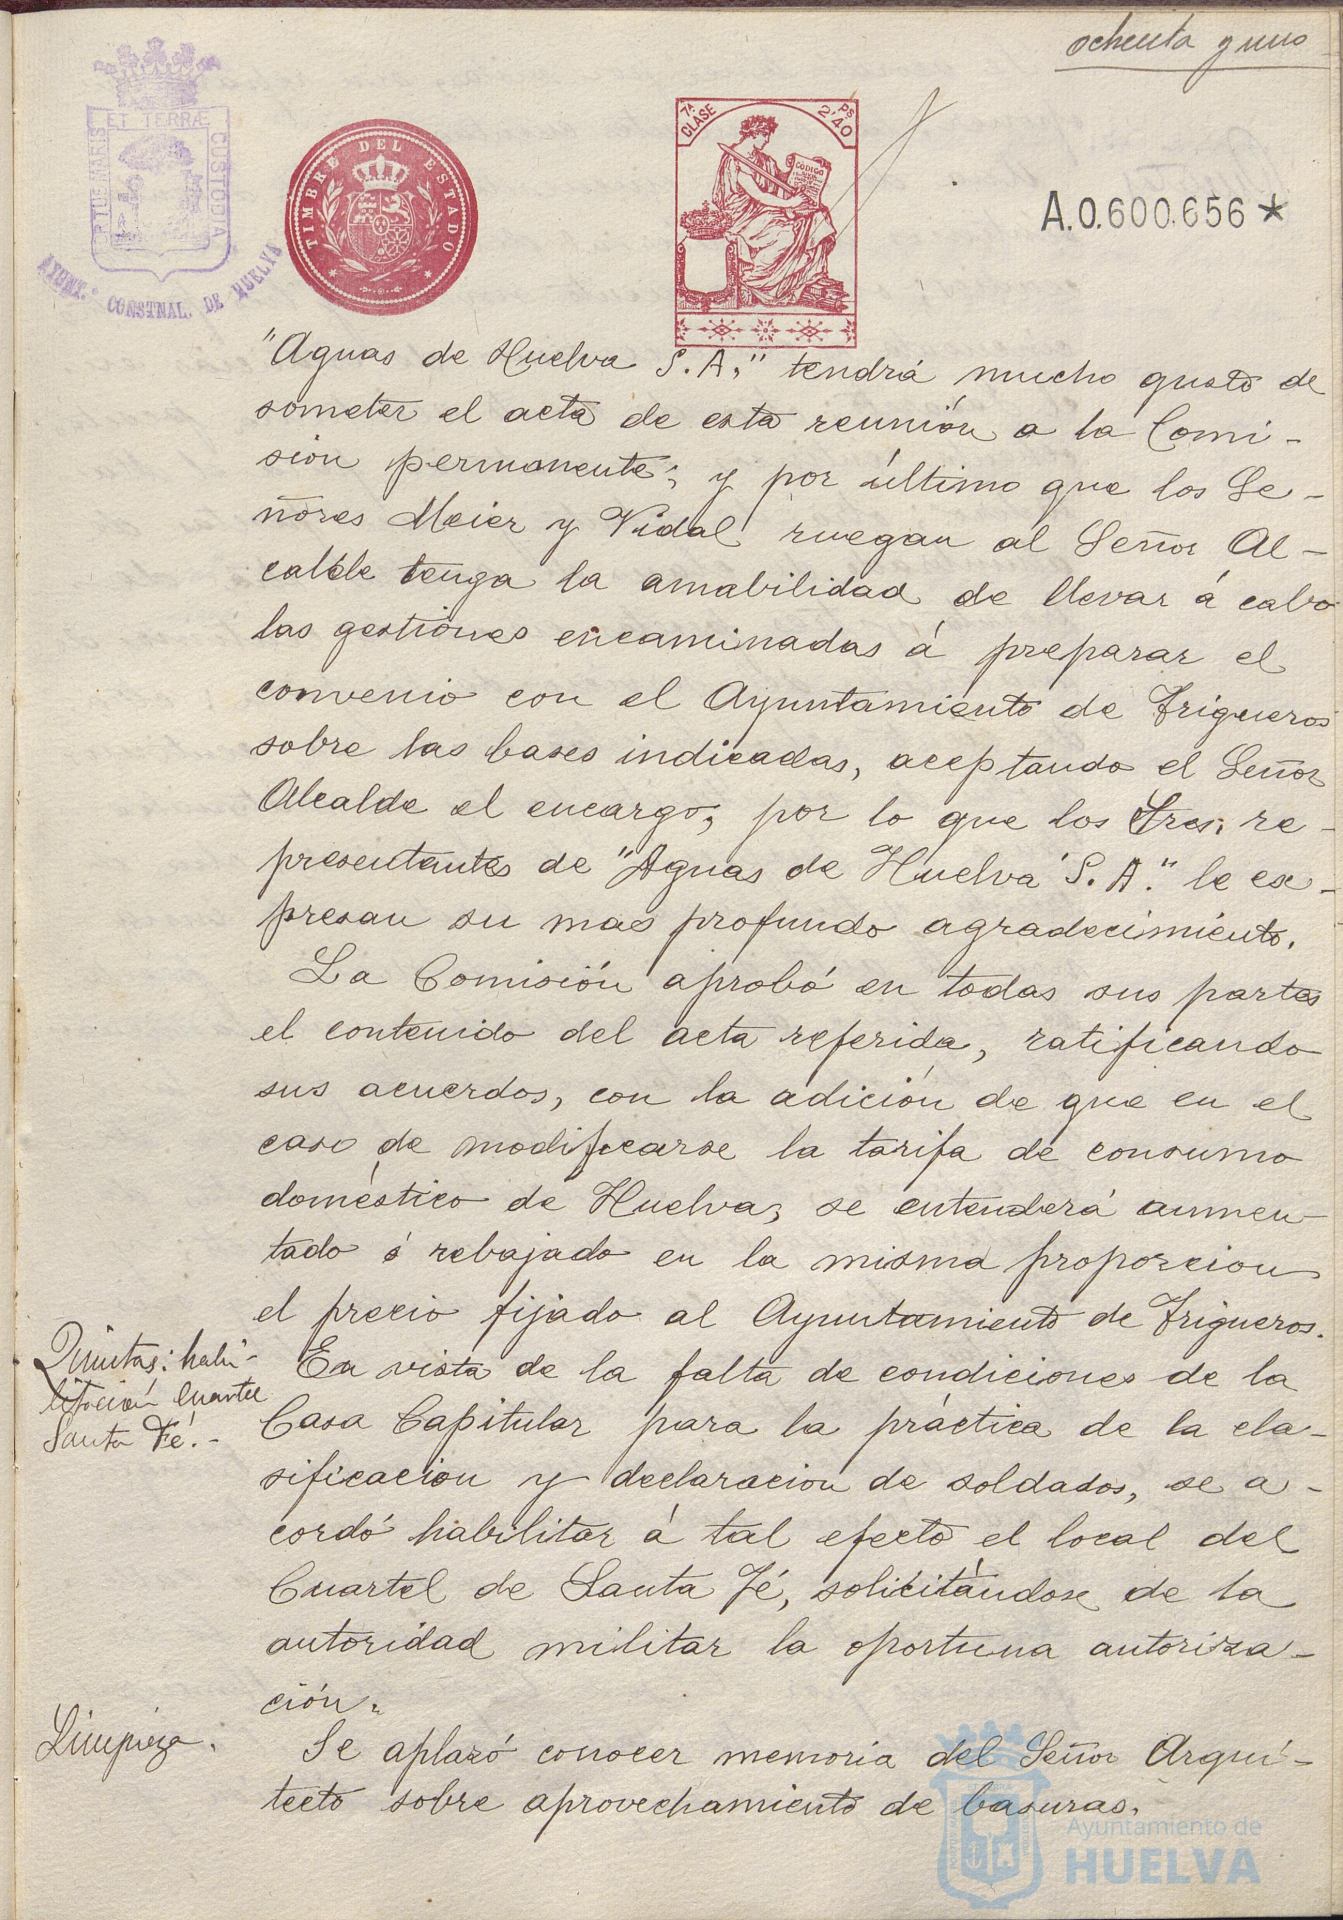 ochenta y uno
PORTUS MARIS
ET TERRÆ
CUSTODIA
AYUNT.º CONSTNAL. DE HUELVA
TIMBRE DEL ESTADO
7ª CLASE
PS 2'40
CODIGO
A.0.600.656*
"Aguas de Huelva S.A." tendrá mucho gusto de
someter el acta de esta reunión a la Comi-
sion permanente; y por último que los Se-
ñores Meier y Vidal ruegan al Señor Al-
calde tenga la amabilidad de llevar á cabo
las gestiones encaminadas á preparar el
convenio con el Ayuntamiento de Trigueros
sobre las bases indicadas, aceptando el Señor
Alcalde el encargo, por lo que los Sres. re-
presentantes de "Aguas de Huelva S.A." le ex-
presan su mas profundo agradecimiento.
La Comisión aprobó en todas sus partes
el contenido del acta referida, ratificando
sus acuerdos, con la adición de que en el
caso de modificarse la tarifa de consumo
doméstico de Huelva, se entenderá aumen-
tado ó rebajado en la misma proporcion
el precio fijado al Ayuntamiento de Trigueros.
Quintas: habi-
litación Cuartel
Santa Fé.-
En vista de la falta de condiciones de la
Casa Capitular para la práctica de la cla-
sificacion y declaracion de soldados, se a-
cordó habilitar á tal efecto el local del
Cuartel de Santa Fé, solicitándose de la
autoridad militar la oportuna autoriza-
ción.
Limpieza.
Se aplazó conocer memoria del Señor Arqui-
tecto sobre aprovechamiento de basuras.
Ayuntamiento de
HUELVA